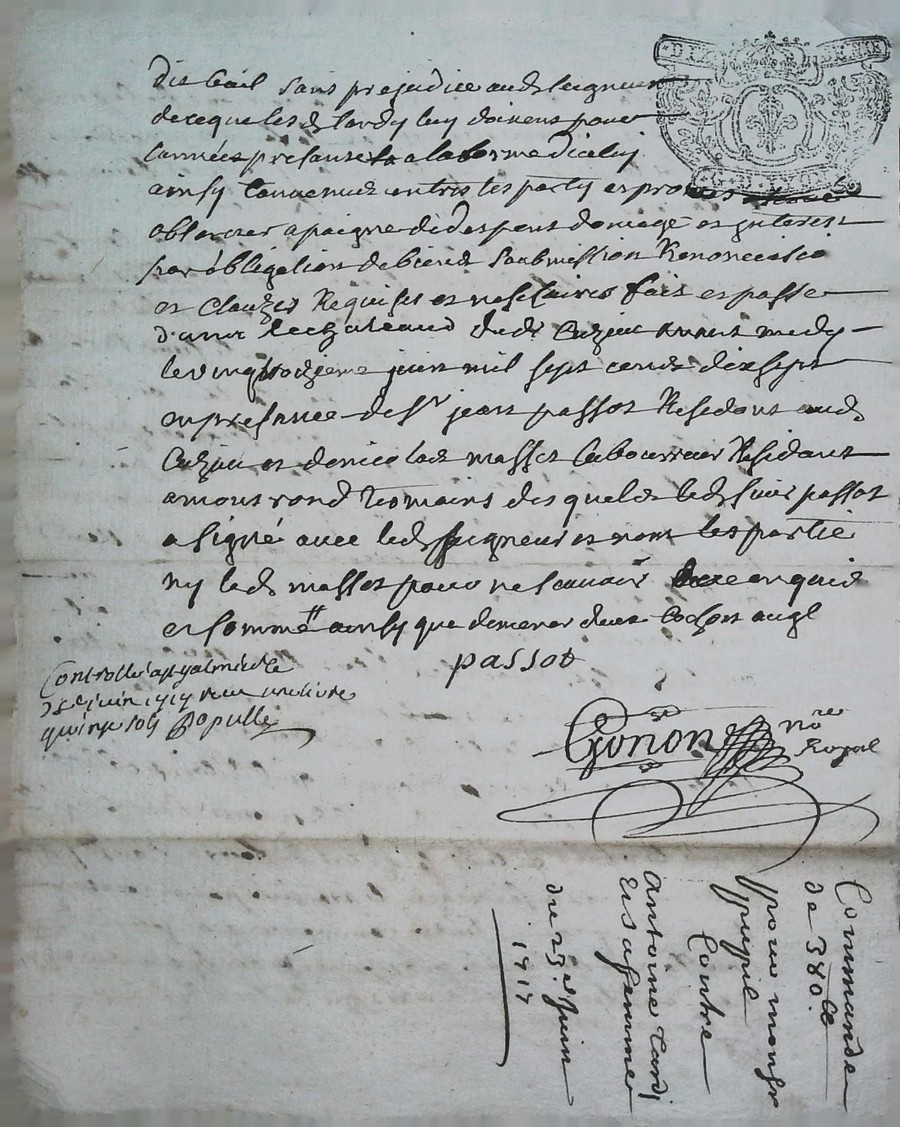 dit bail sans prejudice audt seigneur
de ce que lesdt tardy luy doivent pour
lannées presante a la forme diceluy
ainsy convenue entres les party et promis
observer a paigne de despent domage et interest
par obligation de biend soubmission Renonciasio
et Clauzes Requises et nessaires fait et passe
le chateaud dudt Cuzieu avant midy
le vingtroizieme juin mil sept cend dixsept
en presance de Sr jean passot Residant audt
Cuzieu et de nicolad masset laboureur Residant
a mont rond temoins des quels ledt sieur passot
a signé avec ledt seigneur et nom les partie
ny ledt masset pour ne scavoir enquis
et sommé ainsy que demeure
passot
Controllé a st galmier le
juin 1717 receu une livre
quinze sols Populle
Gonon nore
Royal
Commande
de 380.ll
pour monsr
pupil
Contre
antoine tardy
Et sa femme
du 23e Juin
1717